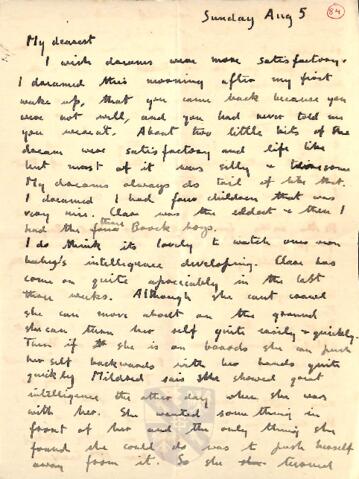 Sunday Aug 5
84
My dearest
I wish dreams were more satisfactory.
I dreamed this morning after my first
wake up, that you came back because you
were not well, and you had never told me
you weren't. About two little bits of the
dream were satisfactory and life like
but most of it was silly &
My dreams always do tail of like that.
I dreamed I had four children that was
very nice. Clare was the eldest & then I
had the three Boock boys.
I do think its lovely to watch ones own
baby's intelligence developing. Clare has
come on quite appreciably in the last
three weeks. Although she cant crawl
she can move about on the ground
she can turn her self quite easily & quickly.
Turn if she is on boards she can push
her self backwards with her hands quite
quickly Mildred says she showed great
intelligence the other day when she was
with her. She wanted something in
front of her and the only thing she
found she could do was to push herself
away from it. So she turned